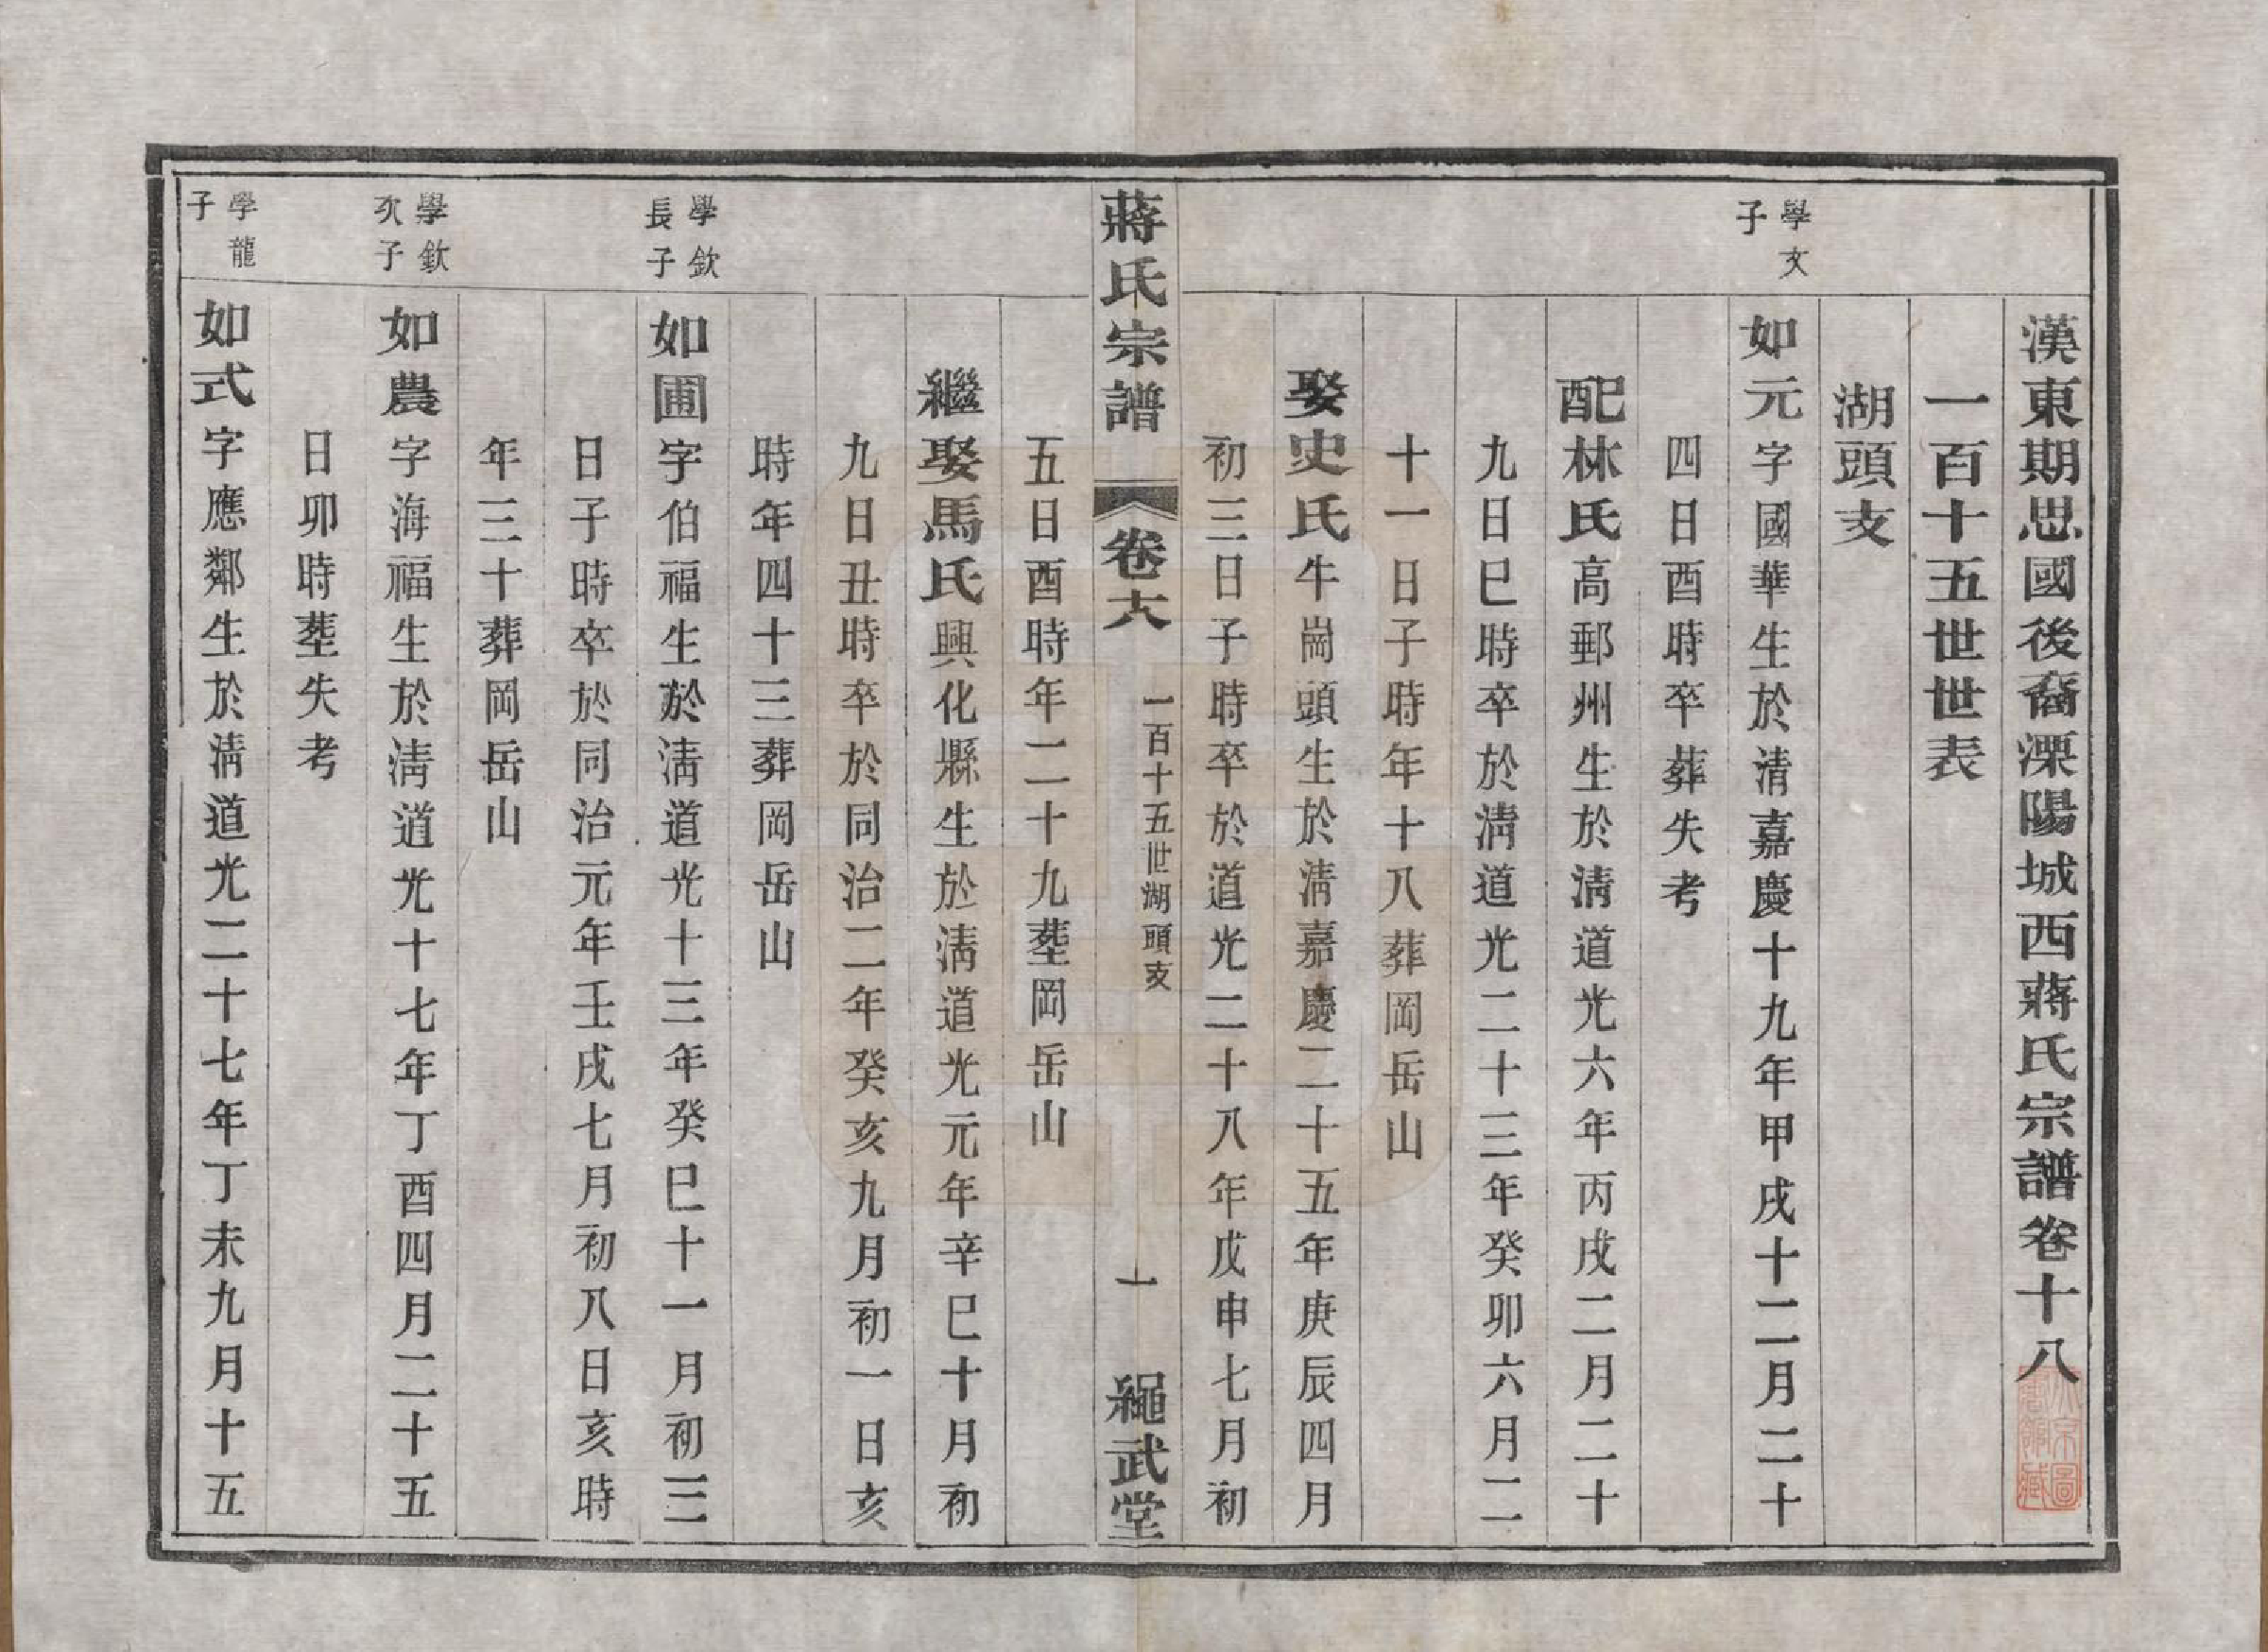 漢東期思國後裔溧陽城西蔣氏宗譜卷十八
一百十五世世表
湖頭支
學文
子
如元字國華生於清嘉慶十九年甲戌十二月二十
四日酉時卒葬失考
配林氏高郵州生於淸道光六年丙戌二月二十
九日巳時卒於淸道光二十三年癸卯六月二
十一日子時年十八葬岡岳山
娶史氏牛崗頭生於淸嘉慶二十五年庚辰四月
初三日子時卒於道光二十八年戊申七月初
蔣氏宗譜 卷十八 一百十五世湖頭支 一 繩武堂
五日酉時年二十九塟岡岳山
繼娶馬氏興化縣生於淸道光元年辛巳十月初
九日丑時卒於同治二年癸亥九月初一日亥
時年四十三葬岡岳山
學欽
長子
如圃字伯福生於淸道光十三年癸巳十一月初三
日子時卒於同治元年壬戌七月初八日亥時
年三十葬岡岳山
學欽
次子
如農字海福生於淸道光十七年丁酉四月二十五
日卯時塟失考
學龍
子
如式字應鄰生於淸道光二十七年丁未九月十五